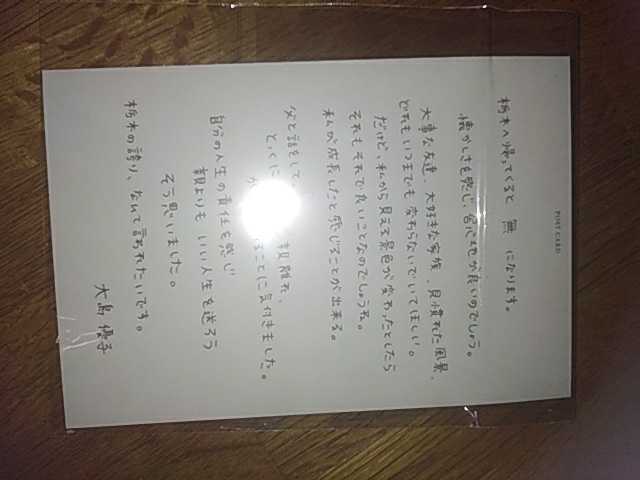 POST CARD
栃木へ帰ってくると 無 になります。
懐かしさを感じ、居心地が良いのでしょう。
大事な友達、大好きな家族、見慣れた風景、
どれもいつまでも変わらないでいてほしい。
だけど、私から見える景色が変わったとしたら
それもそれで良いことなのでしょうね。
私が成長したと感じることが出来る。
父と話をして、
とくに 親離れ、
が ることに気付きました。
自分の人生の責任を感じ
親よりも いい人生を送ろう
そう思いました。
栃木の誇り、なんて言われたいです。
大島優子